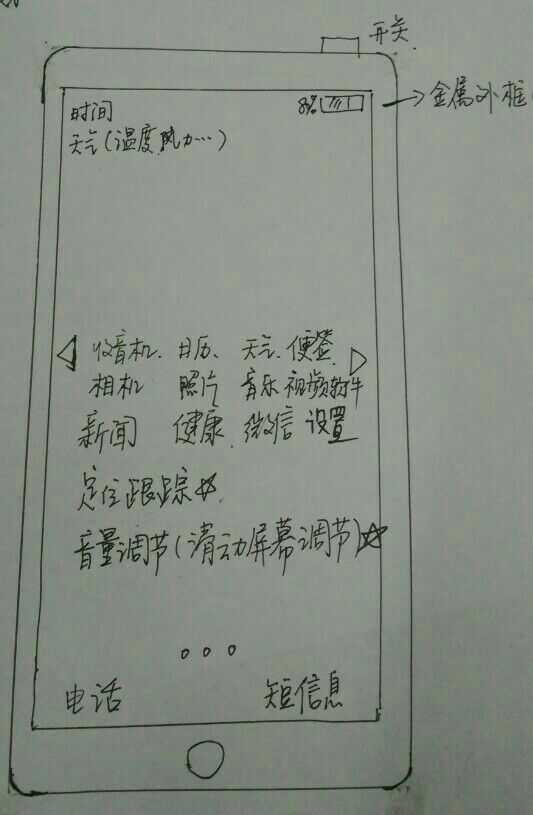 开关
金属外框
时间
8%
天气(温度,风力…)
收音机. 日历、 天气. 便签
相机 照片 音乐 视频软件
新闻 健康. 微信 设置
定位跟踪☆.
音量调节(清动屏幕调节)☆
电话 短信息